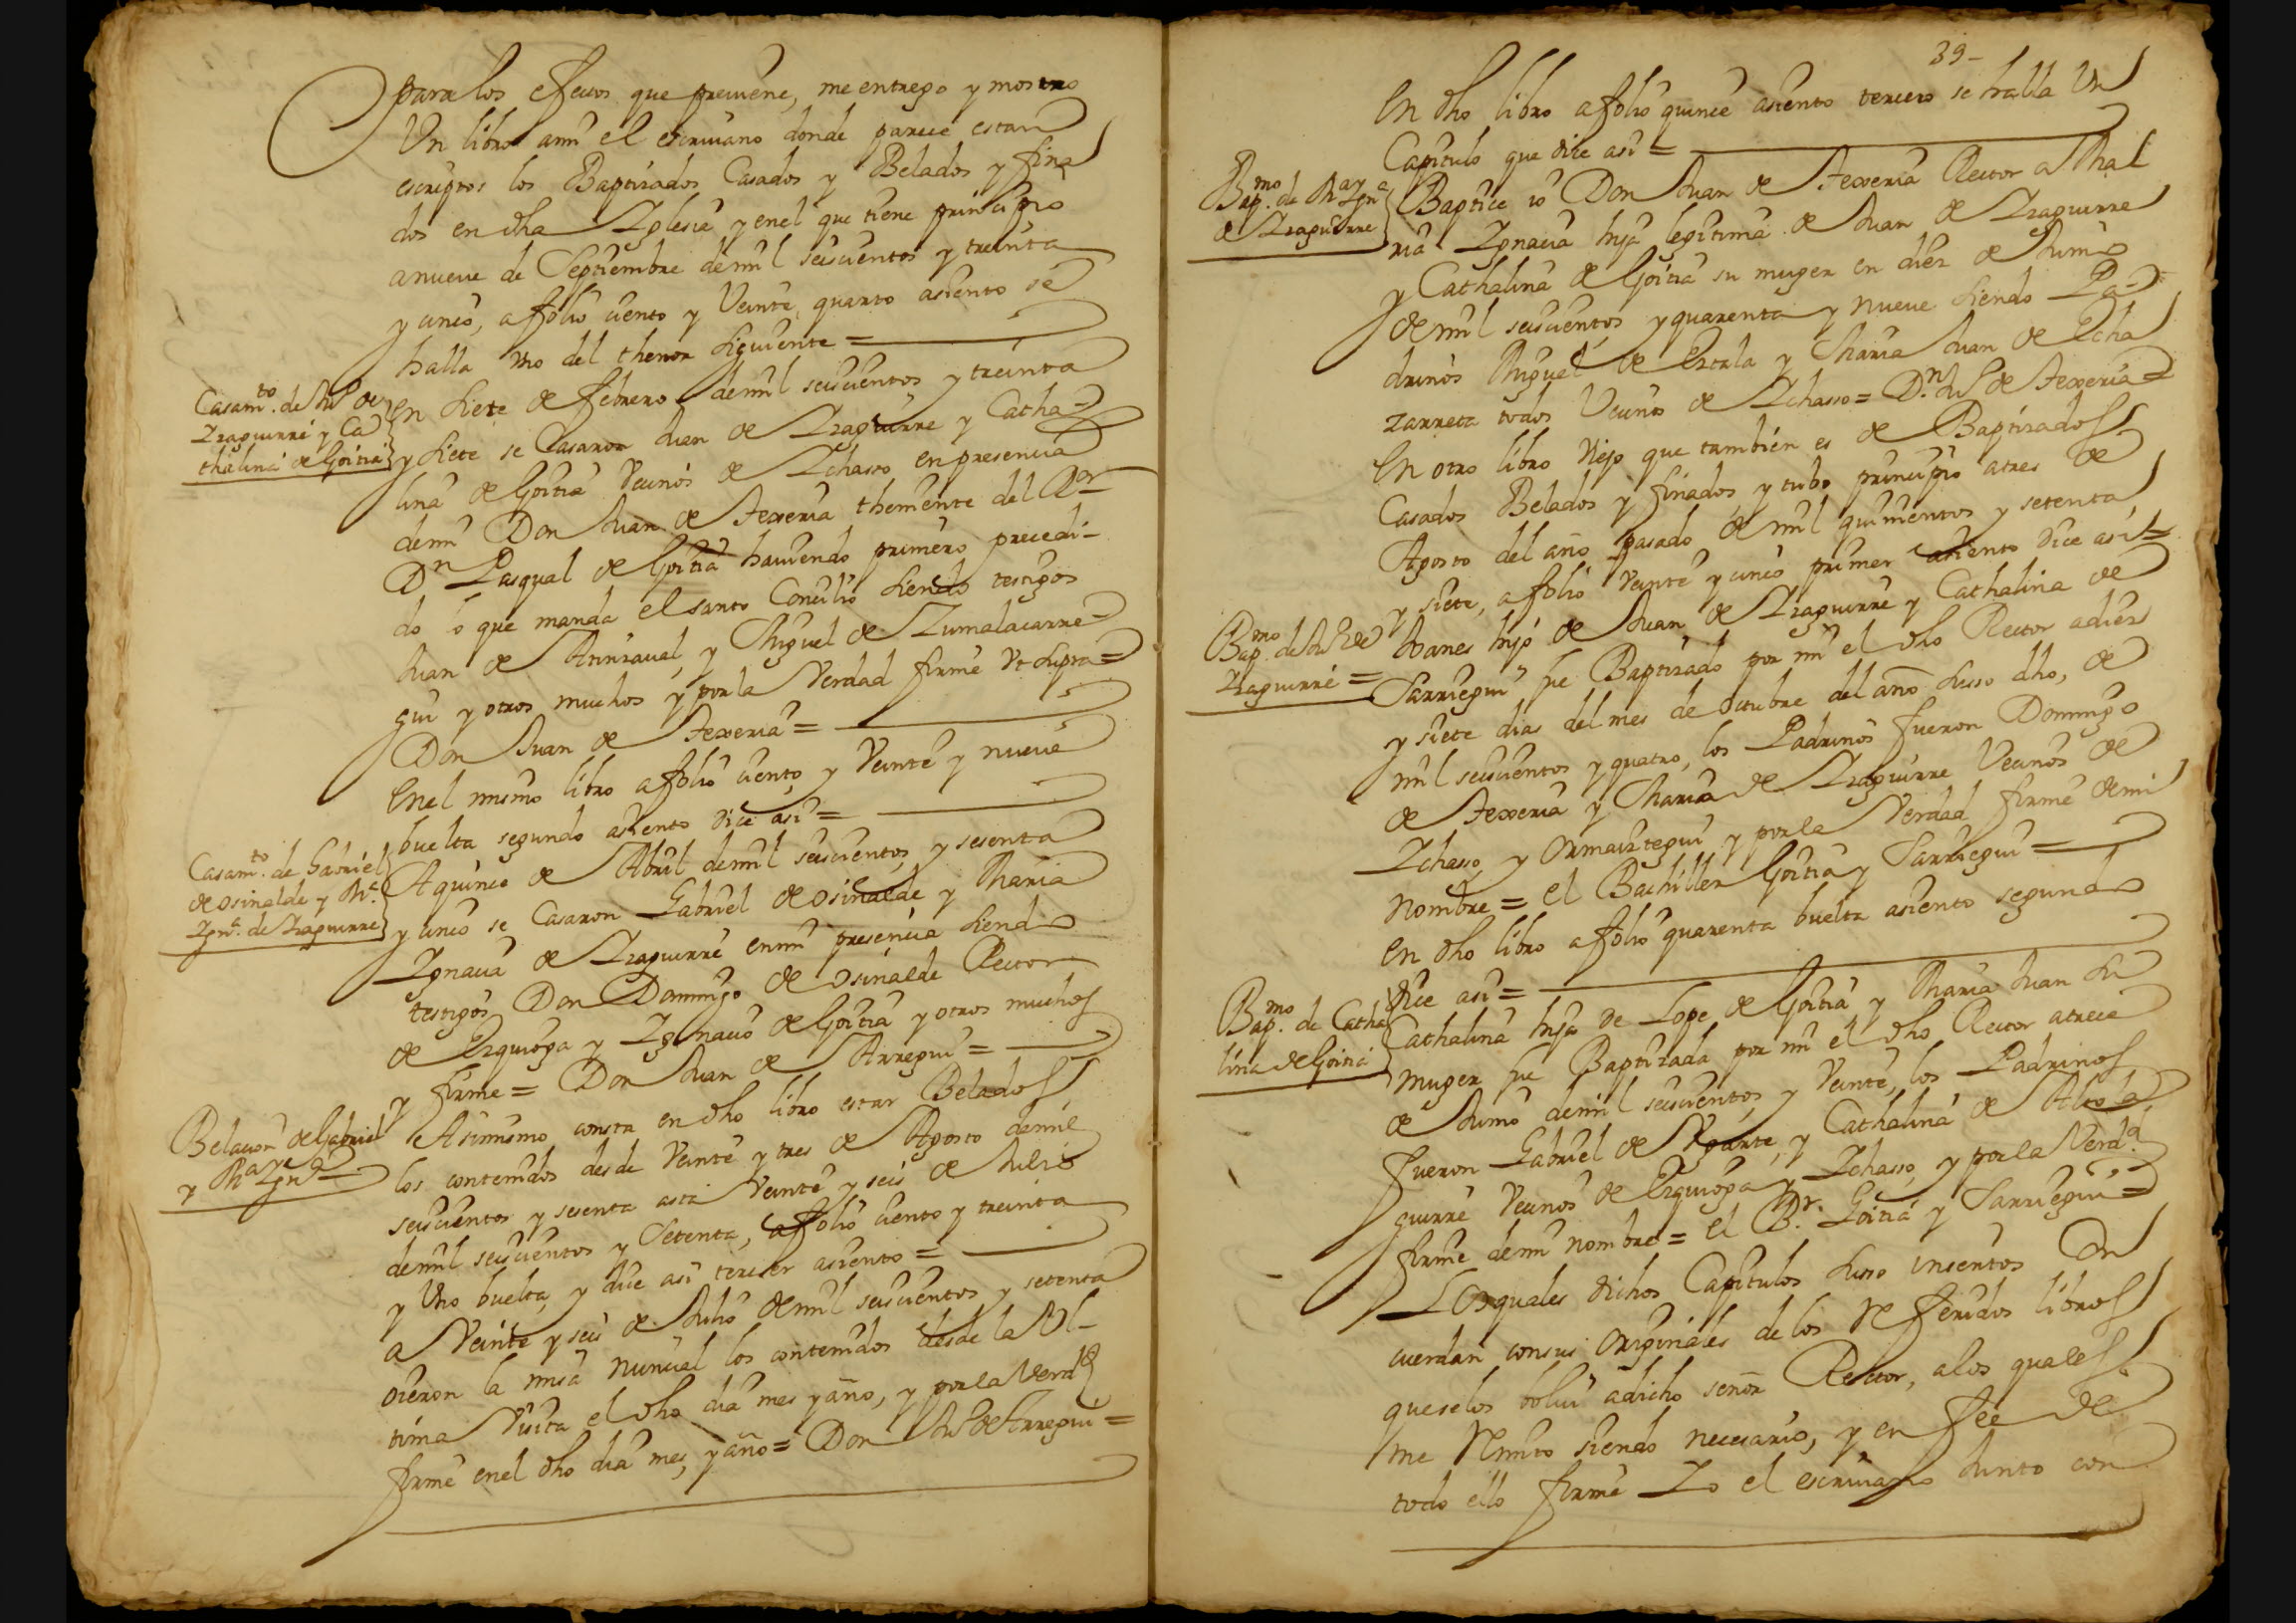 para los efectos que preuiene, me entrego y mostro
Vn libro ami el escriuano donde pareçe estan
escriptos los Baptizados Casados y Belados y fina
dos en dha Yglesia y enel que tiene principio
anueue de Septiembre demil seiscientos y treinta
y cinco, afolio ciento y Veinte, quarto asiento se
halla Vno del thenor siguiente =
Casamto. de Juº de
Yraguirre y Ca
thalina de Goitia
En siete de febrero demil seiscientos y treinta
y siete se Casaron Juan de Yraguirre y Catha-
lina de Goitia Vecinos de Ychasso en presencia
demi Don Juan de Texeria theniente del Ror
Dn Pasqual de Goitia hauiendo primero precedi-
do lo que manda el santo Concilio siendo testigos
Juan de Arinzaual, y Miguel de Zumalacarre-
gui y otros muchos y por la Verdad firmé Vt supra=
Don Juan de Texeria =
Enel mismo libro afolio ciento y Veinte y nueue
buelta segundo asiento dice asi =
Casamto. de Gabriel
de Osinalde y Mª.
Ygnª. de Yraguirre
A quince de Abril demil seiscientos y sesenta
y cinco se Casaron Gabriel de Osinalde y Maria
Ygnacia de Yraguirre enmi presencia siendo
testigos Don Domingo de Osinalde Rector
de Ezquioga y Ygnacio de Goitia y otros muchos
y firme = Don Juan de Arregui =
Belacion de Gabriel
y Mª Ygnª
Asimismo consta en dho libro estar Belados
los contenidos desde Veinte y tres de Agosto demil
seiscientos y sesenta asta Veinte y seis de Julio
demil seiscientos y Setenta, afolio ciento y treinta
y Vno buelta, y dice asi tercer asiento =
a Veinte y seis de Julio demil seiscientos y setenta
oieron la misa nuncial los contenidos desde la Vl-
tima Visita el dho dia mes y año, y por la Verdd
firmé enel dho dia mes, y año = Don Juº de Arregui =
39-
En dho libro afolio quince asiento tercero se halla Vn
Capitulo que dice asi =
Bapmo. de Mª Ygnª
de Yraguirre
Baptice io Don Juan de Texeria Rector a Ma
ria Ygnacia hija legitima de Juan de Yraguirre
y Cathalina de Goitia su muger en diez de Junio
de mil seiscientos y quarenta y nueue siendo Pa-
drinos Miguel de Eztala y Maria Juan de Echa
zarreta todos Vecinos de Ychasso = Dn. Juº de Texeria =
En otro libro Viejo que tambien es de Baptizados
Casados Belados y finados y tubo principio atres de
Agosto del año pasado de mil quinientos y setenta
y siete, afolio Veinte y cinco primer asiento dice asi =
Bapmo. de Juº de
Yraguirre =
Joanes hijo de Juan de Yraguirre y Cathalina de
Sarriegui fue Baptizado por mi el dho Rector adiez
y siete dias del mes de Octubre del año susso dho, de
mil seiscientos y quatro, los Padrinos fueron Domingo
de Texeria y Maria de Yraguirre Vecinos de
Ychasso y Ormaiztegui y por la Verdad firme demi
nombre = el Bachiller Goitia y Sarriegui =
en dho libro afolio quarenta buelta asiento segundo
dice asi =
Bapmo. de Catha
lina de Goitia
Cathalina hija de Lope de Goitia y Maria Juan su
muger fue Baptizada por mi el dho Rector atrece
de Junio demil seiscientos y Veinte, los Padrinos
fueron Gabriel de Vgarte, y Cathalina de Alzola
guirre Vecinos de Ezquioga y Ychasso, y por la Verdd.
firmé demi nombre = el Br. Goitia y Sarriegui =
Los quales dichos Capitulos susso insertos Con
cuerdan consus Originales de los Referidos libros
que se los bolui adicho señor Rector, alos quales
me Remito siendo necesario, y en fee de
todo ello firmé Yo el escriuano Junto con